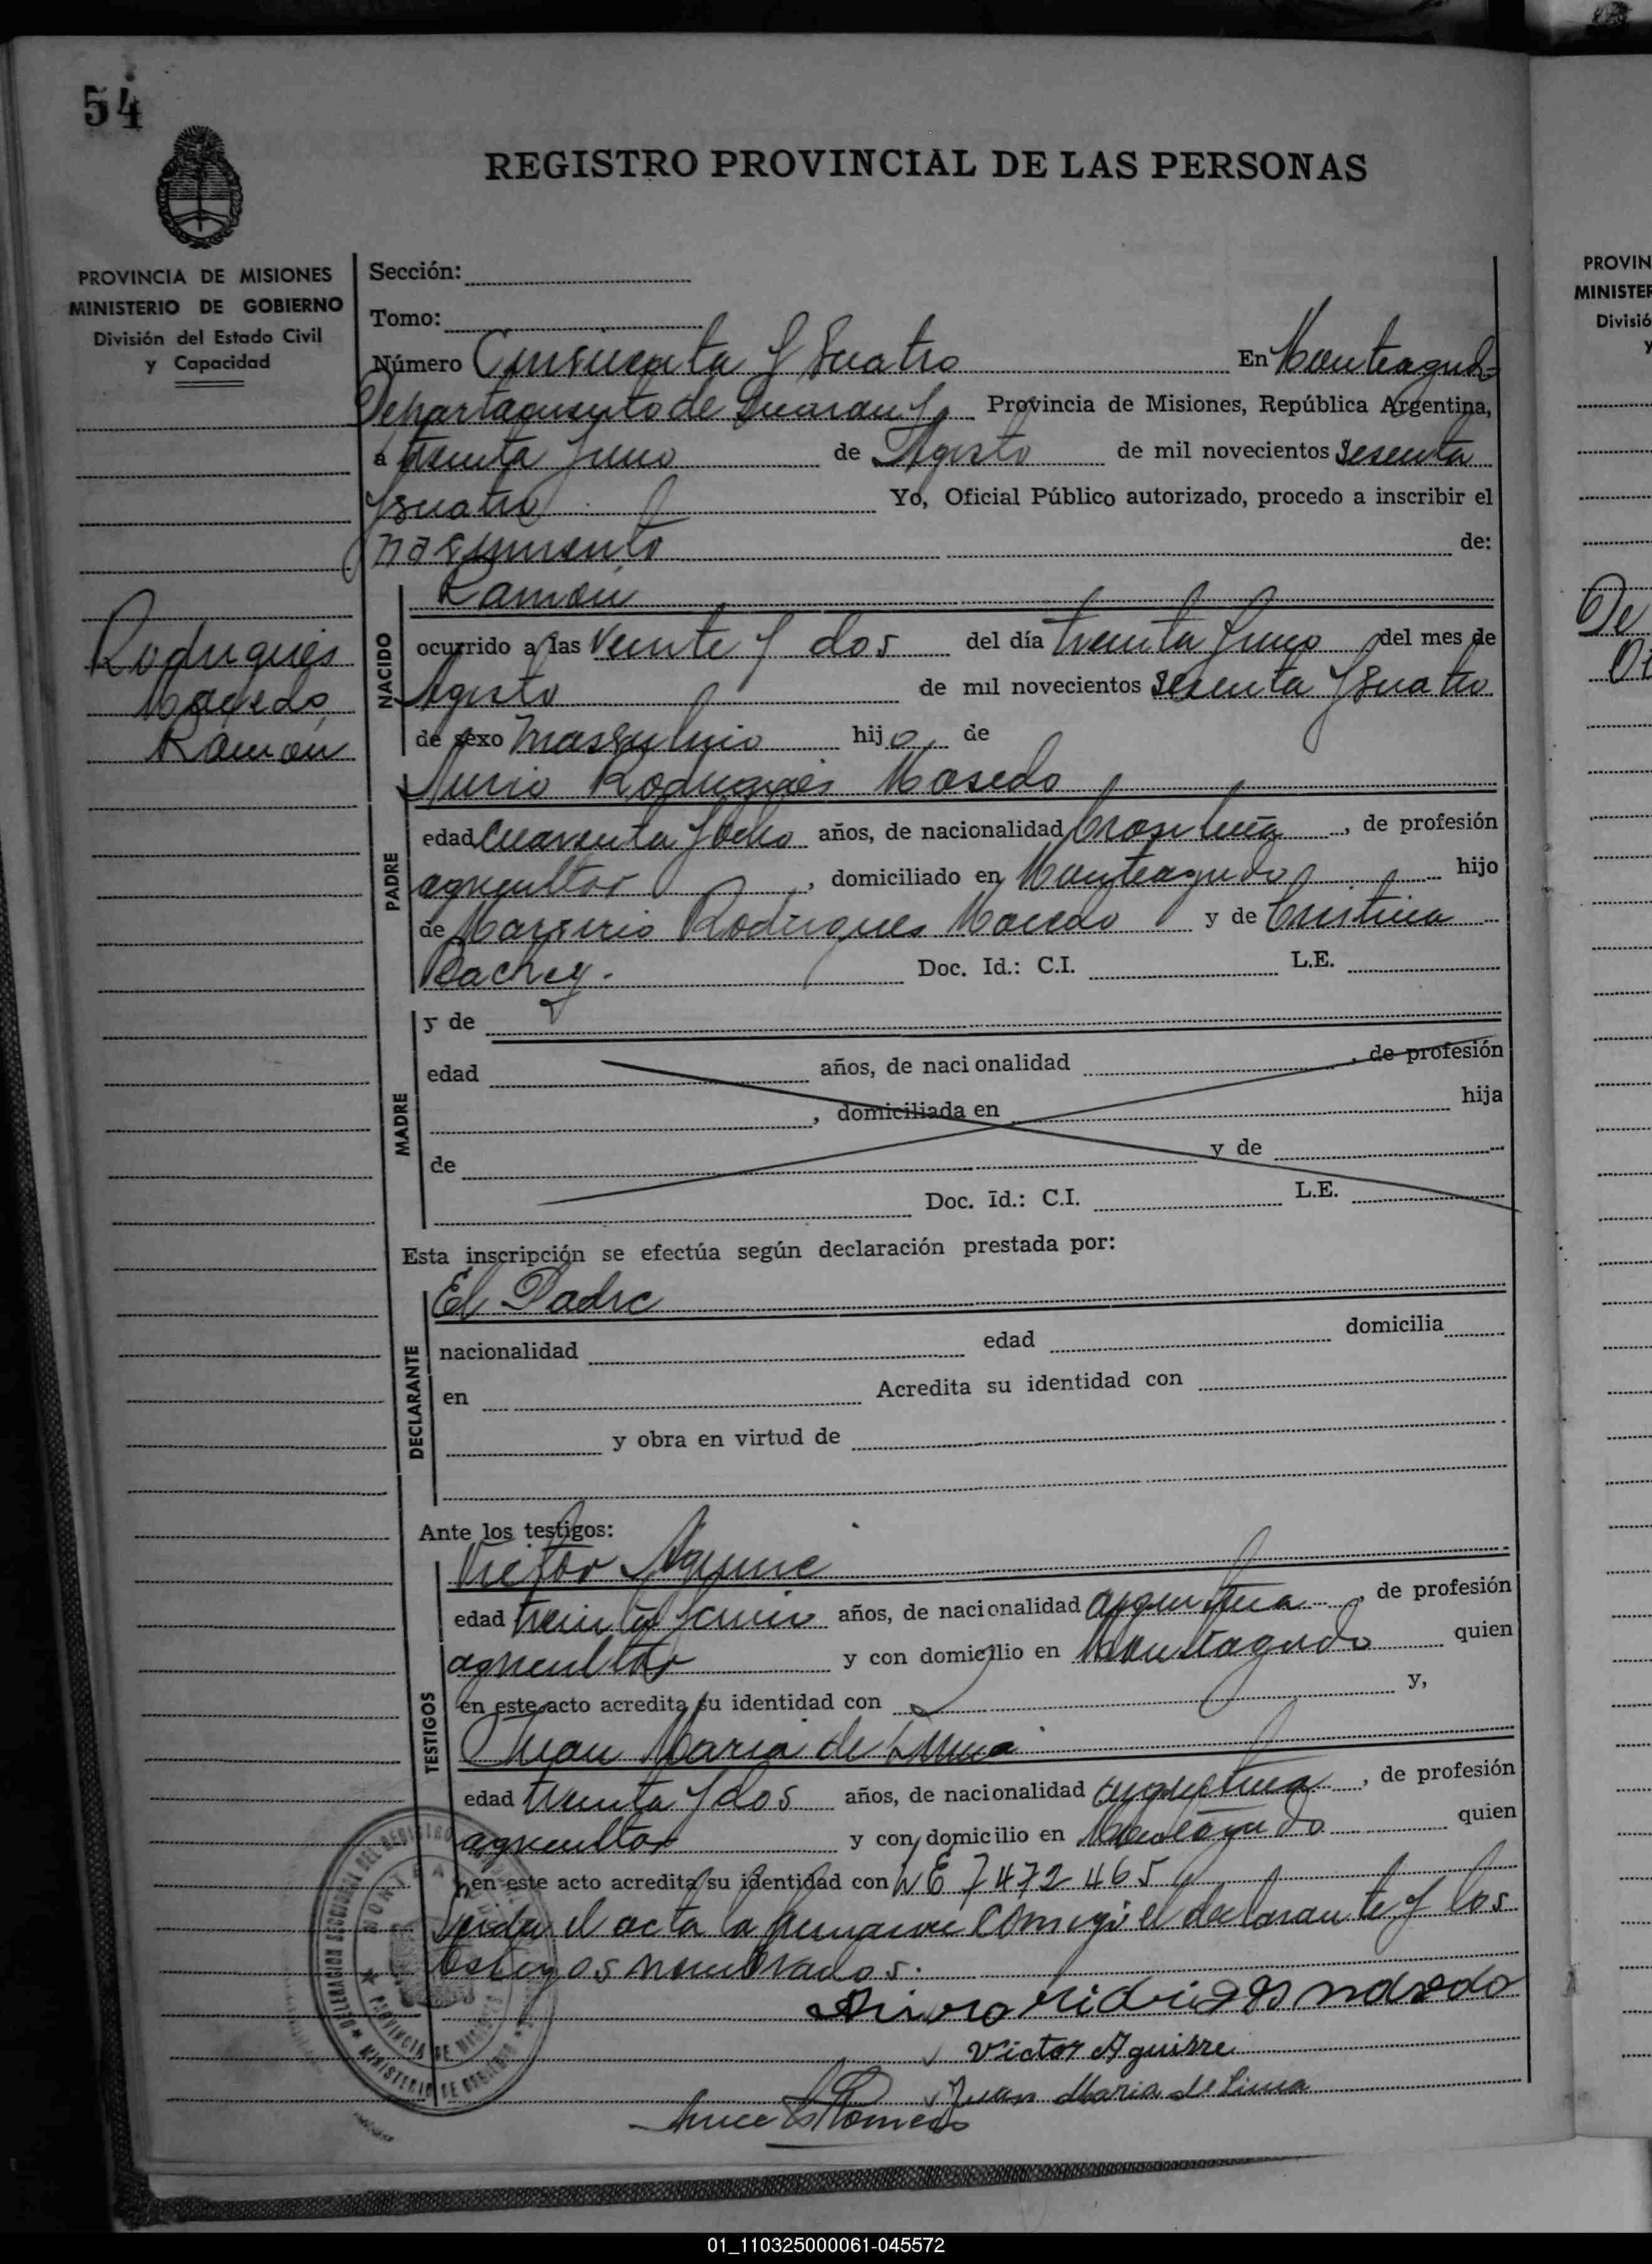 54
REGISTRO PROVINCIAL DE LAS PERSONAS
PROVINCIA DE MISIONES
MINISTERIO DE GOBIERNO
División del Estado Civil
y Capacidad
Sección:
Tomo:
Número Cinsuenta y Suatro En Monteagudo
Departamento de Guarany Provincia de Misiones, República Argentina,
a treinta y uno de Agosto de mil novecientos Sesenta
y Suatro Yo, Oficial Público autorizado, procedo a inscribir el
nasimiento de:
Ramón
Rodrigues
Macedo,
Ramón
NACIDO
ocurrido a las veinte y dos del día treinta y uno del mes de
Agosto de mil novecientos sesenta y Suatro
de sexo massulino hijo de
Rodrigues Masedo
PADRE
edad cuarenta y ocho años, de nacionalidad brasileña, de profesión
agricultor, domiciliado en Monteagudo hijo
de Rodrigues Macedo y de Cristina
Doc. Id.: C.I. L.E.
MADRE
y de
edad años, de nacionalidad , de profesión
, domiciliada en hija
de y de
Doc. Id.: C.I. L.E.
Esta inscripción se efectúa según declaración prestada por:
DECLARANTE
El Padre
nacionalidad edad domicilia
en Acredita su identidad con
y obra en virtud de
Ante los testigos:
TESTIGOS
Victor Aguirre
edad treinta y años, de nacionalidad argentina, de profesión
agricultor y con domicilio en Monteagudo quien
en este acto acredita su identidad con y,
Juan Maria de Lima
edad treinta y dos años, de nacionalidad argentina, de profesión
agricultor y con domicilio en Monteagudo quien
en este acto acredita su identidad con L E 7472465
Leida el acta la firmaron comigo el declarante y los
testigos nombrados.
Victor Aguirre
Juan Maria de Lima
DELEGACION SECCIONAL DEL REGISTRO
PROVINCIA DE MISIONES
MINISTERIO DE GOBIERNO
PROVIN
MINISTER
Divisió
y
De
01_110325000061-045572